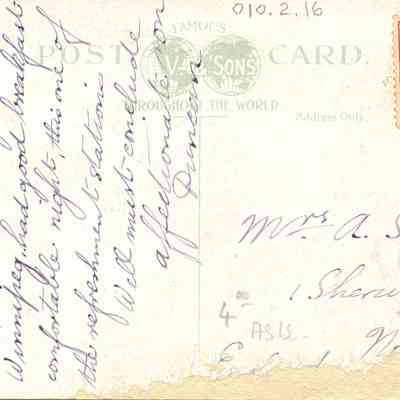 010.2.16
FAMOUS
POST CARD.
V & SONS
THROUGHOUT THE WORLD
Address Only.
Winnipeg, had good breakfast
comfortable night, this one of
the refreshment stations
Well must conclude
affectionate son
Duncan
Mrs A. S
1 Sherw
4-
ASIS-